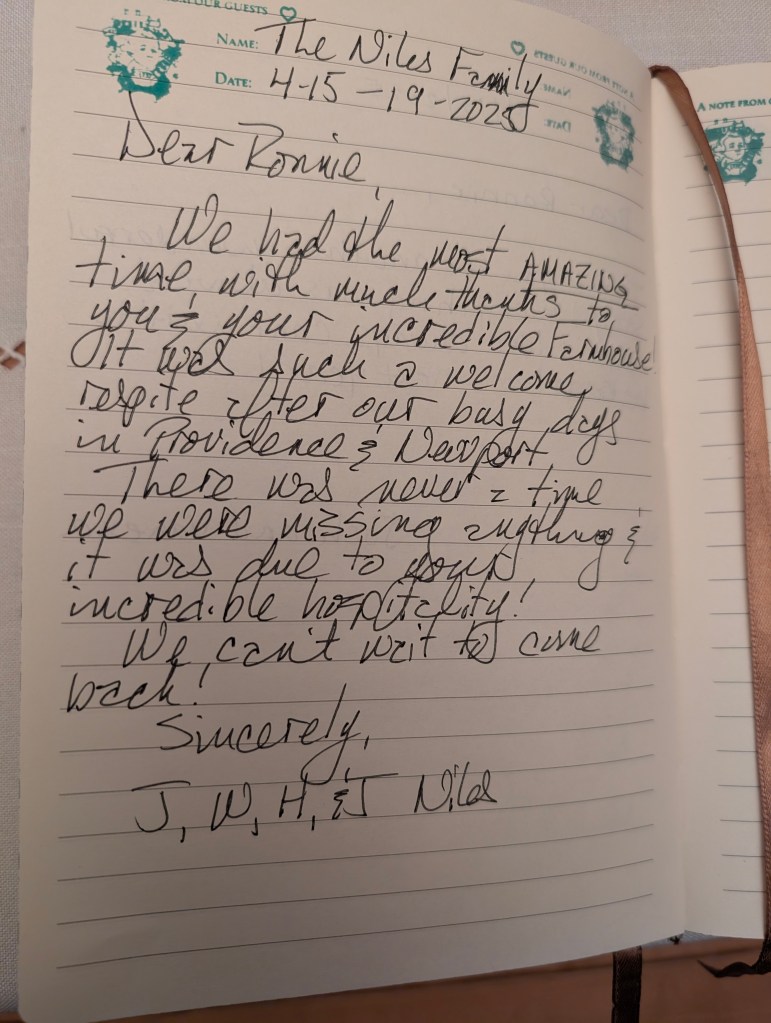 OUR GUESTS
NAME: The Niles Family
DATE: 4-15-19-2025
Dear Ronnie,
We had the most AMAZING
time, with much thanks to
you & your incredible Farmhouse!
It was such a welcome
respite after our busy days
in Providence & Newport.
There was never a time
we were missing anything &
it was due to your
incredible hospitality!
We can't wait to come
back!
Sincerely,
J, W, H, & J Niles
A NOTE FROM